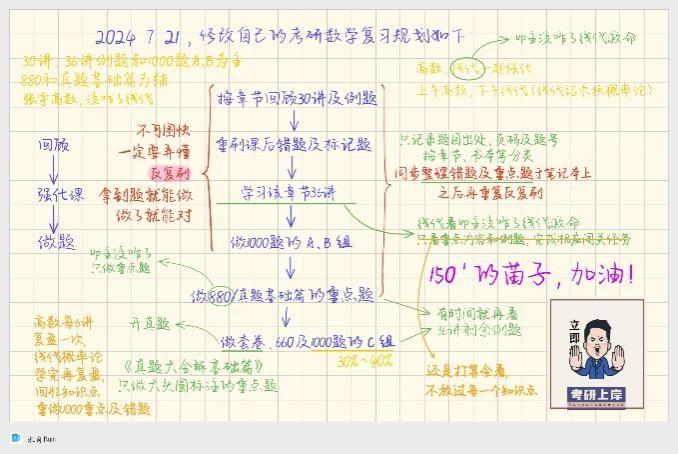 2024 7 21, 修改自己的考研数学复习规划如下
即主没咋了线代救命
30讲、36讲例题和1000题A、B为主
880和真题基础篇为辅
张宇高数, 没咋了线代
高数、线代一起强化
上午高数, 下午线代(线代结束换概率论)
回顾
强化课
做题
不可图快
一定要弄懂
反复刷
拿到题就能做
做了就能对
按章节回顾30讲及例题
重刷课后错题及标记题
学习该章节36讲
做1000题的A、B组
做880/真题基础篇的重点题
做套卷、660及1000题的C组
30%~40%
只记录题目出处、页码及题号
按章节、书本等分类
同步整理错题及重点题于笔记本上
之后再重复反复刷
线代看即主没咋了线代救命
只看重点内容和例题, 完成相应闭关任务
150⁺的苗子, 加油!
即主没咋了
只做重点题
有时间就再看
36讲剩余例题
开真题
《真题大全解基础篇》
只做大头图标注的重点题
高数每6讲
复盘一次,
线代概率论
学完再复盘,
回忆知识点
重做1000重点及错题
还是打算全看,
不放过每一个知识点
立即
考研上岸